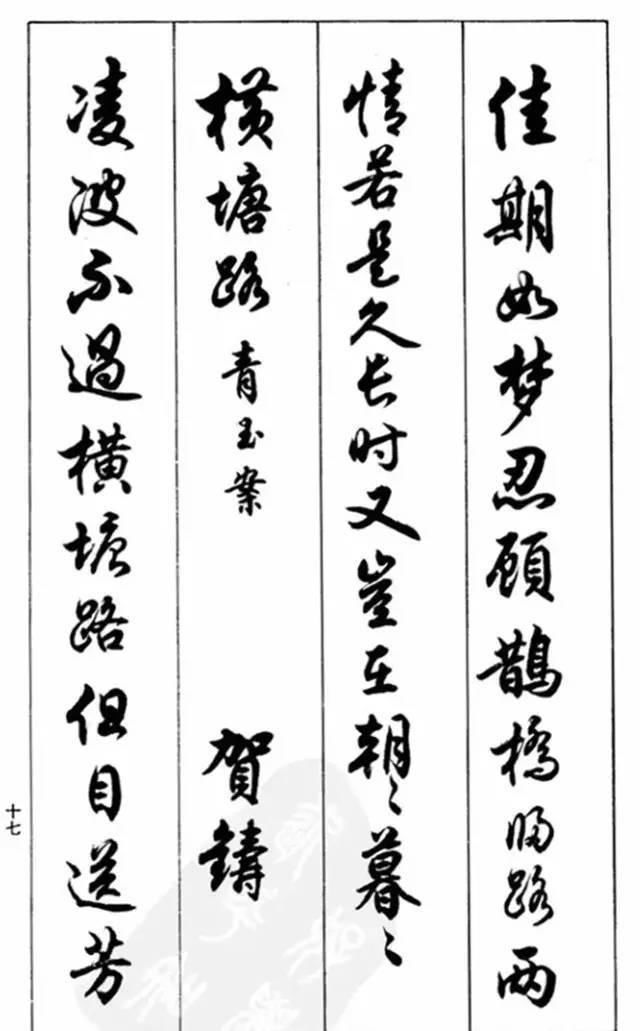 佳期如梦忍顾鹊橋归路两
情若是久长时又岂在朝〻暮〻
横塘路 青玉案 賀鑄
凌波不過横塘路但目送芳
十七